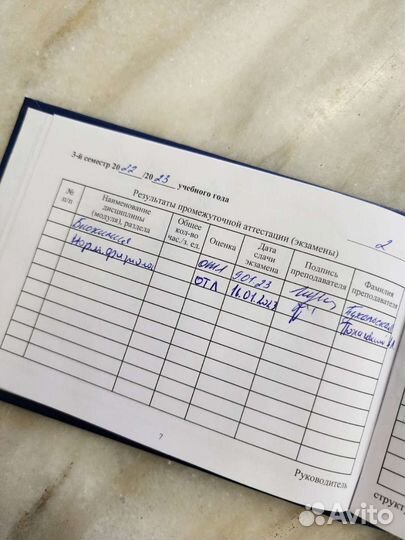 3-й семестр 2022/2023 учебного года
Результаты промежуточной аттестации (экзамены) 2
№ п/п
Наименование дисциплины (модуля), раздела
Общее кол-во час./з. ед.
Оценка
Дата сдачи экзамена
Подпись преподавателя
Фамилия преподавателя
Биохимия отл 9.01.23
Норм физиол ОТЛ 16.01.2023
7
Руководитель
структ
Avito